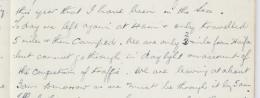 this year that I have been in the Sea.
Today we left again at 10am & only travelled
5 miles & then Camped. We are only 3 miles from Haifa
but cannot go through in daylight on account of
the Congestion of traffic. We are leaving at about
3am tomorrow as we must be through it by 5am